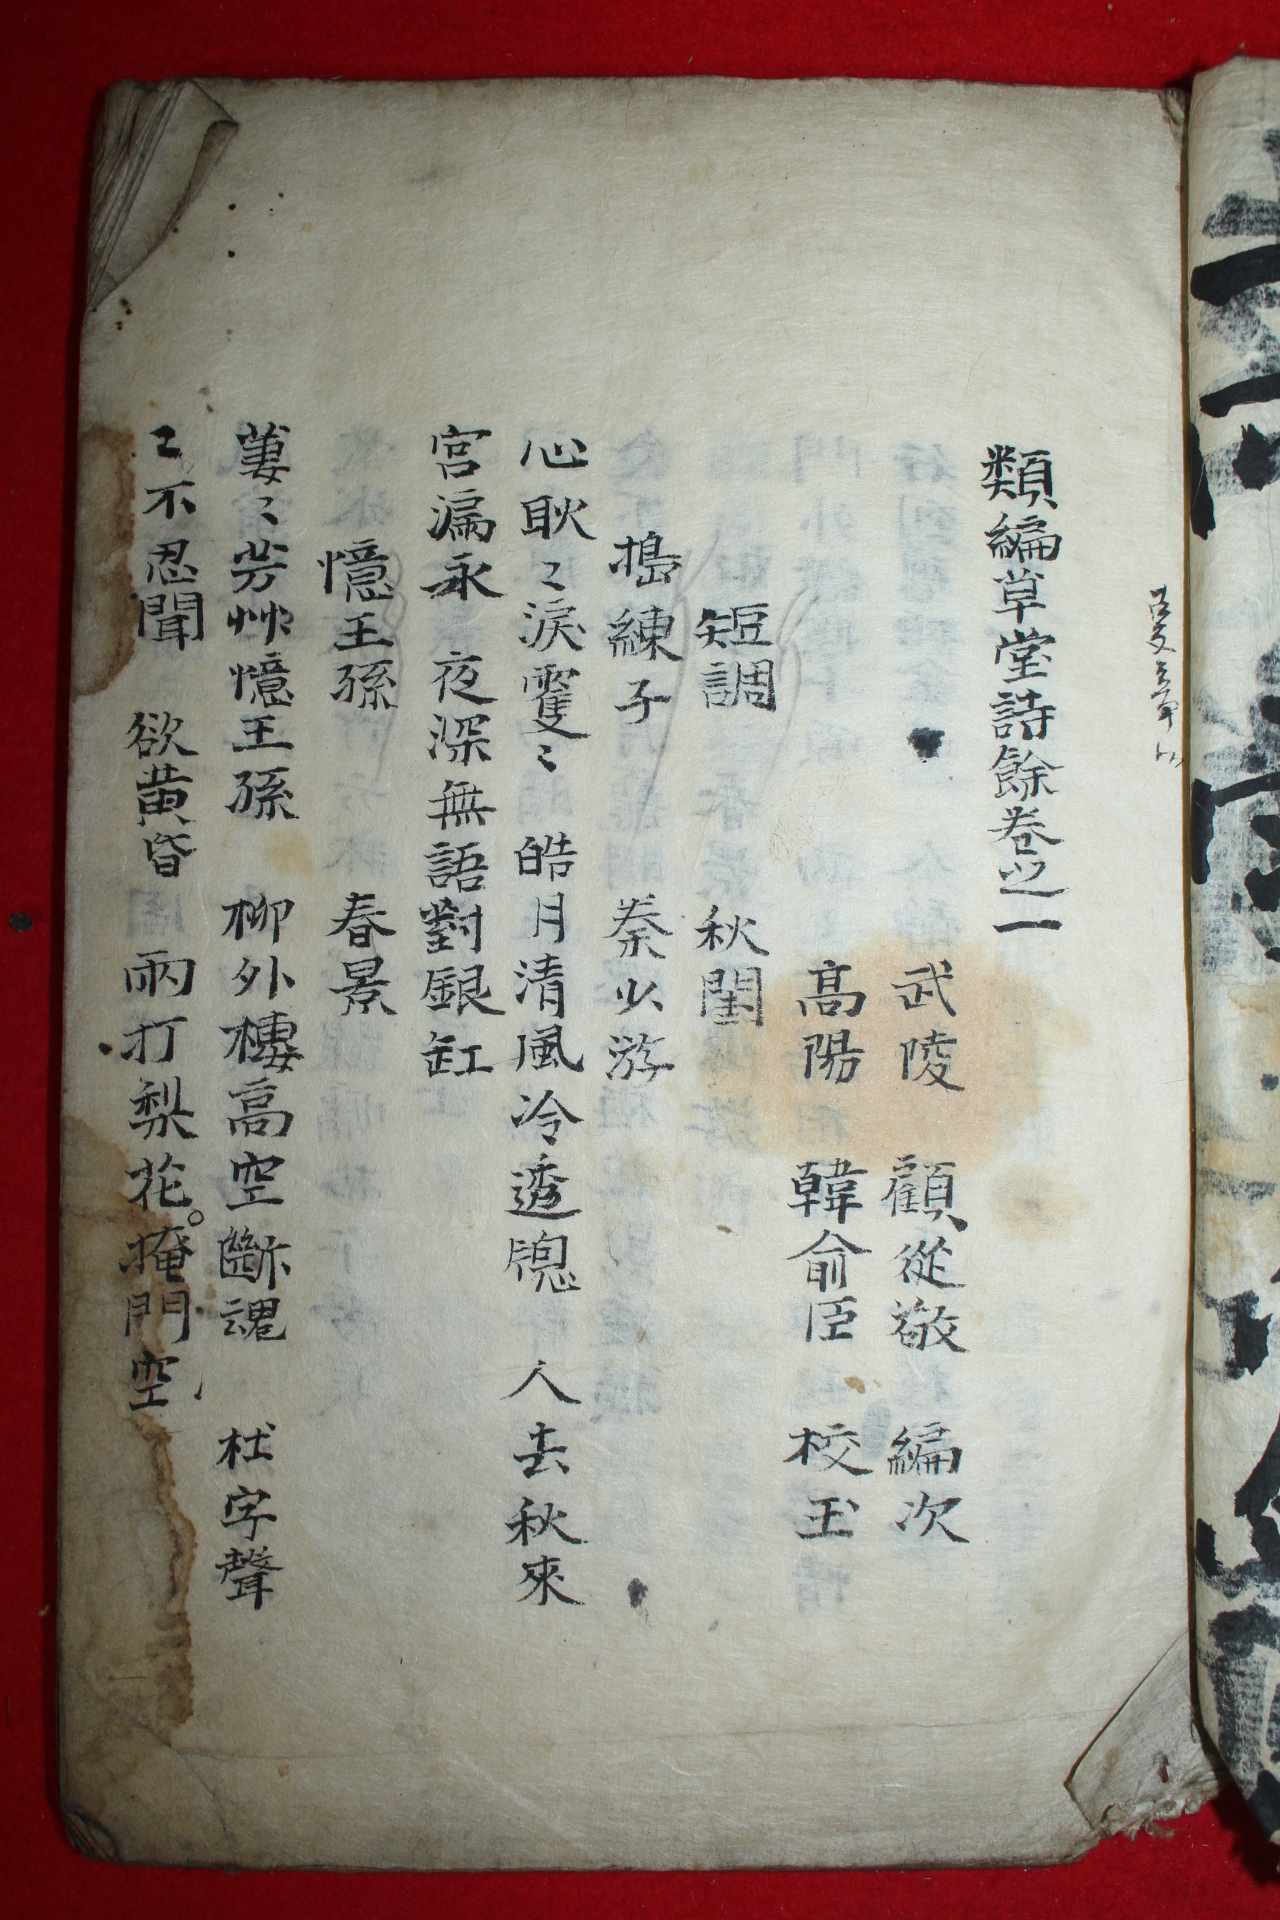 類編草堂詩餘卷之一
武陵 顧從敬 編次
高陽 韓俞臣 校玉
短調 秋閨
搗練子 秦少游
心耿〻淚䨇〻 皓月清風冷透牎 人去秋來
宮漏永 夜深無語對銀缸
憶王孫 春景
萋〻芳艸憶王孫 柳外樓高空斷魂 杜字聲
〻不忍聞 欲黄昏 雨打梨花掩門空